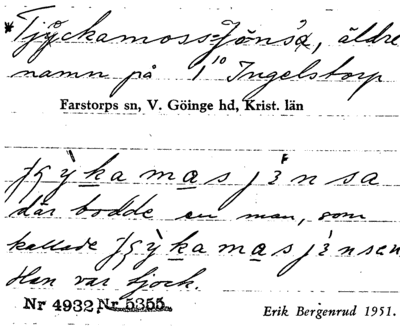 *Tjyckamoss-Jönsa, äldre
namn på 1¹⁰ Ingelstorp
Farstorps sn, V. Göinge hd, Krist. län
där bodde en man, som
kallade
Han var tjock.
Nr 4932. Nr 5355.
Erik Bergenrud 1951.